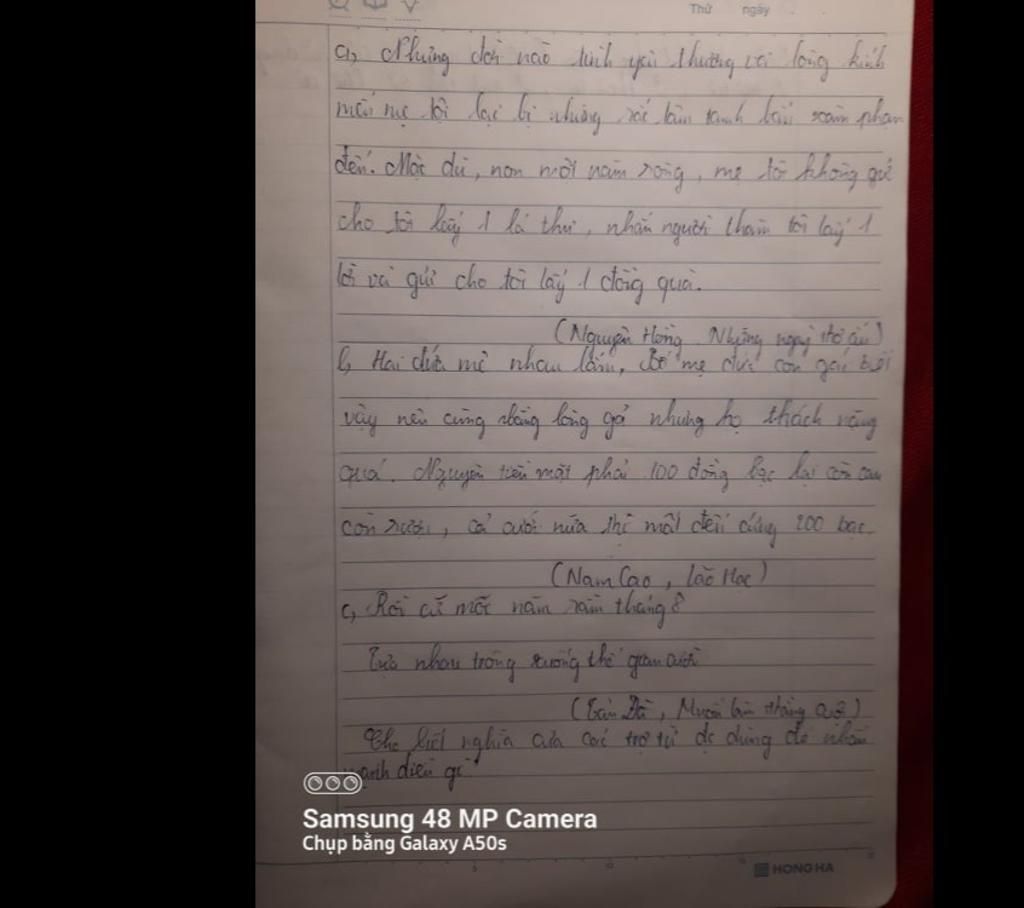 Thứ ngày
a, Nhưng đời nào tình yêu thương và lòng kính
mến mẹ tôi lại bị những rắp tâm tanh bẩn xâm phạm
đến. Mặc dù, non một năm ròng, mẹ tôi không gửi
cho tôi lấy 1 lá thư, nhắn người thăm tôi lấy 1
lời và gửi cho tôi lấy 1 đồng quà.
(Nguyên Hồng, Những ngày thơ ấu)
b, Hai đứa mê nhau lắm, Bố mẹ đứa con gái biết
vậy nên cũng bằng lòng gả nhưng họ thách nặng
quá. Nguyên tiền mặt phải 100 đồng bạc lại còn cau
còn rượu, cả cưới nữa thì mất đến cứng 200 bạc.
(Nam Cao, Lão Hạc)
c, Rồi cứ mỗi năm rằm tháng 8
Tựa nhau trông xuống thế gian cười
(Tản Đà, Muốn làm thằng cuội)
Cho biết nghĩa của các trợ từ đc dùng để nhấn
mạnh điều gì
Samsung 48 MP Camera
Chụp bằng Galaxy A50s
HONG HA